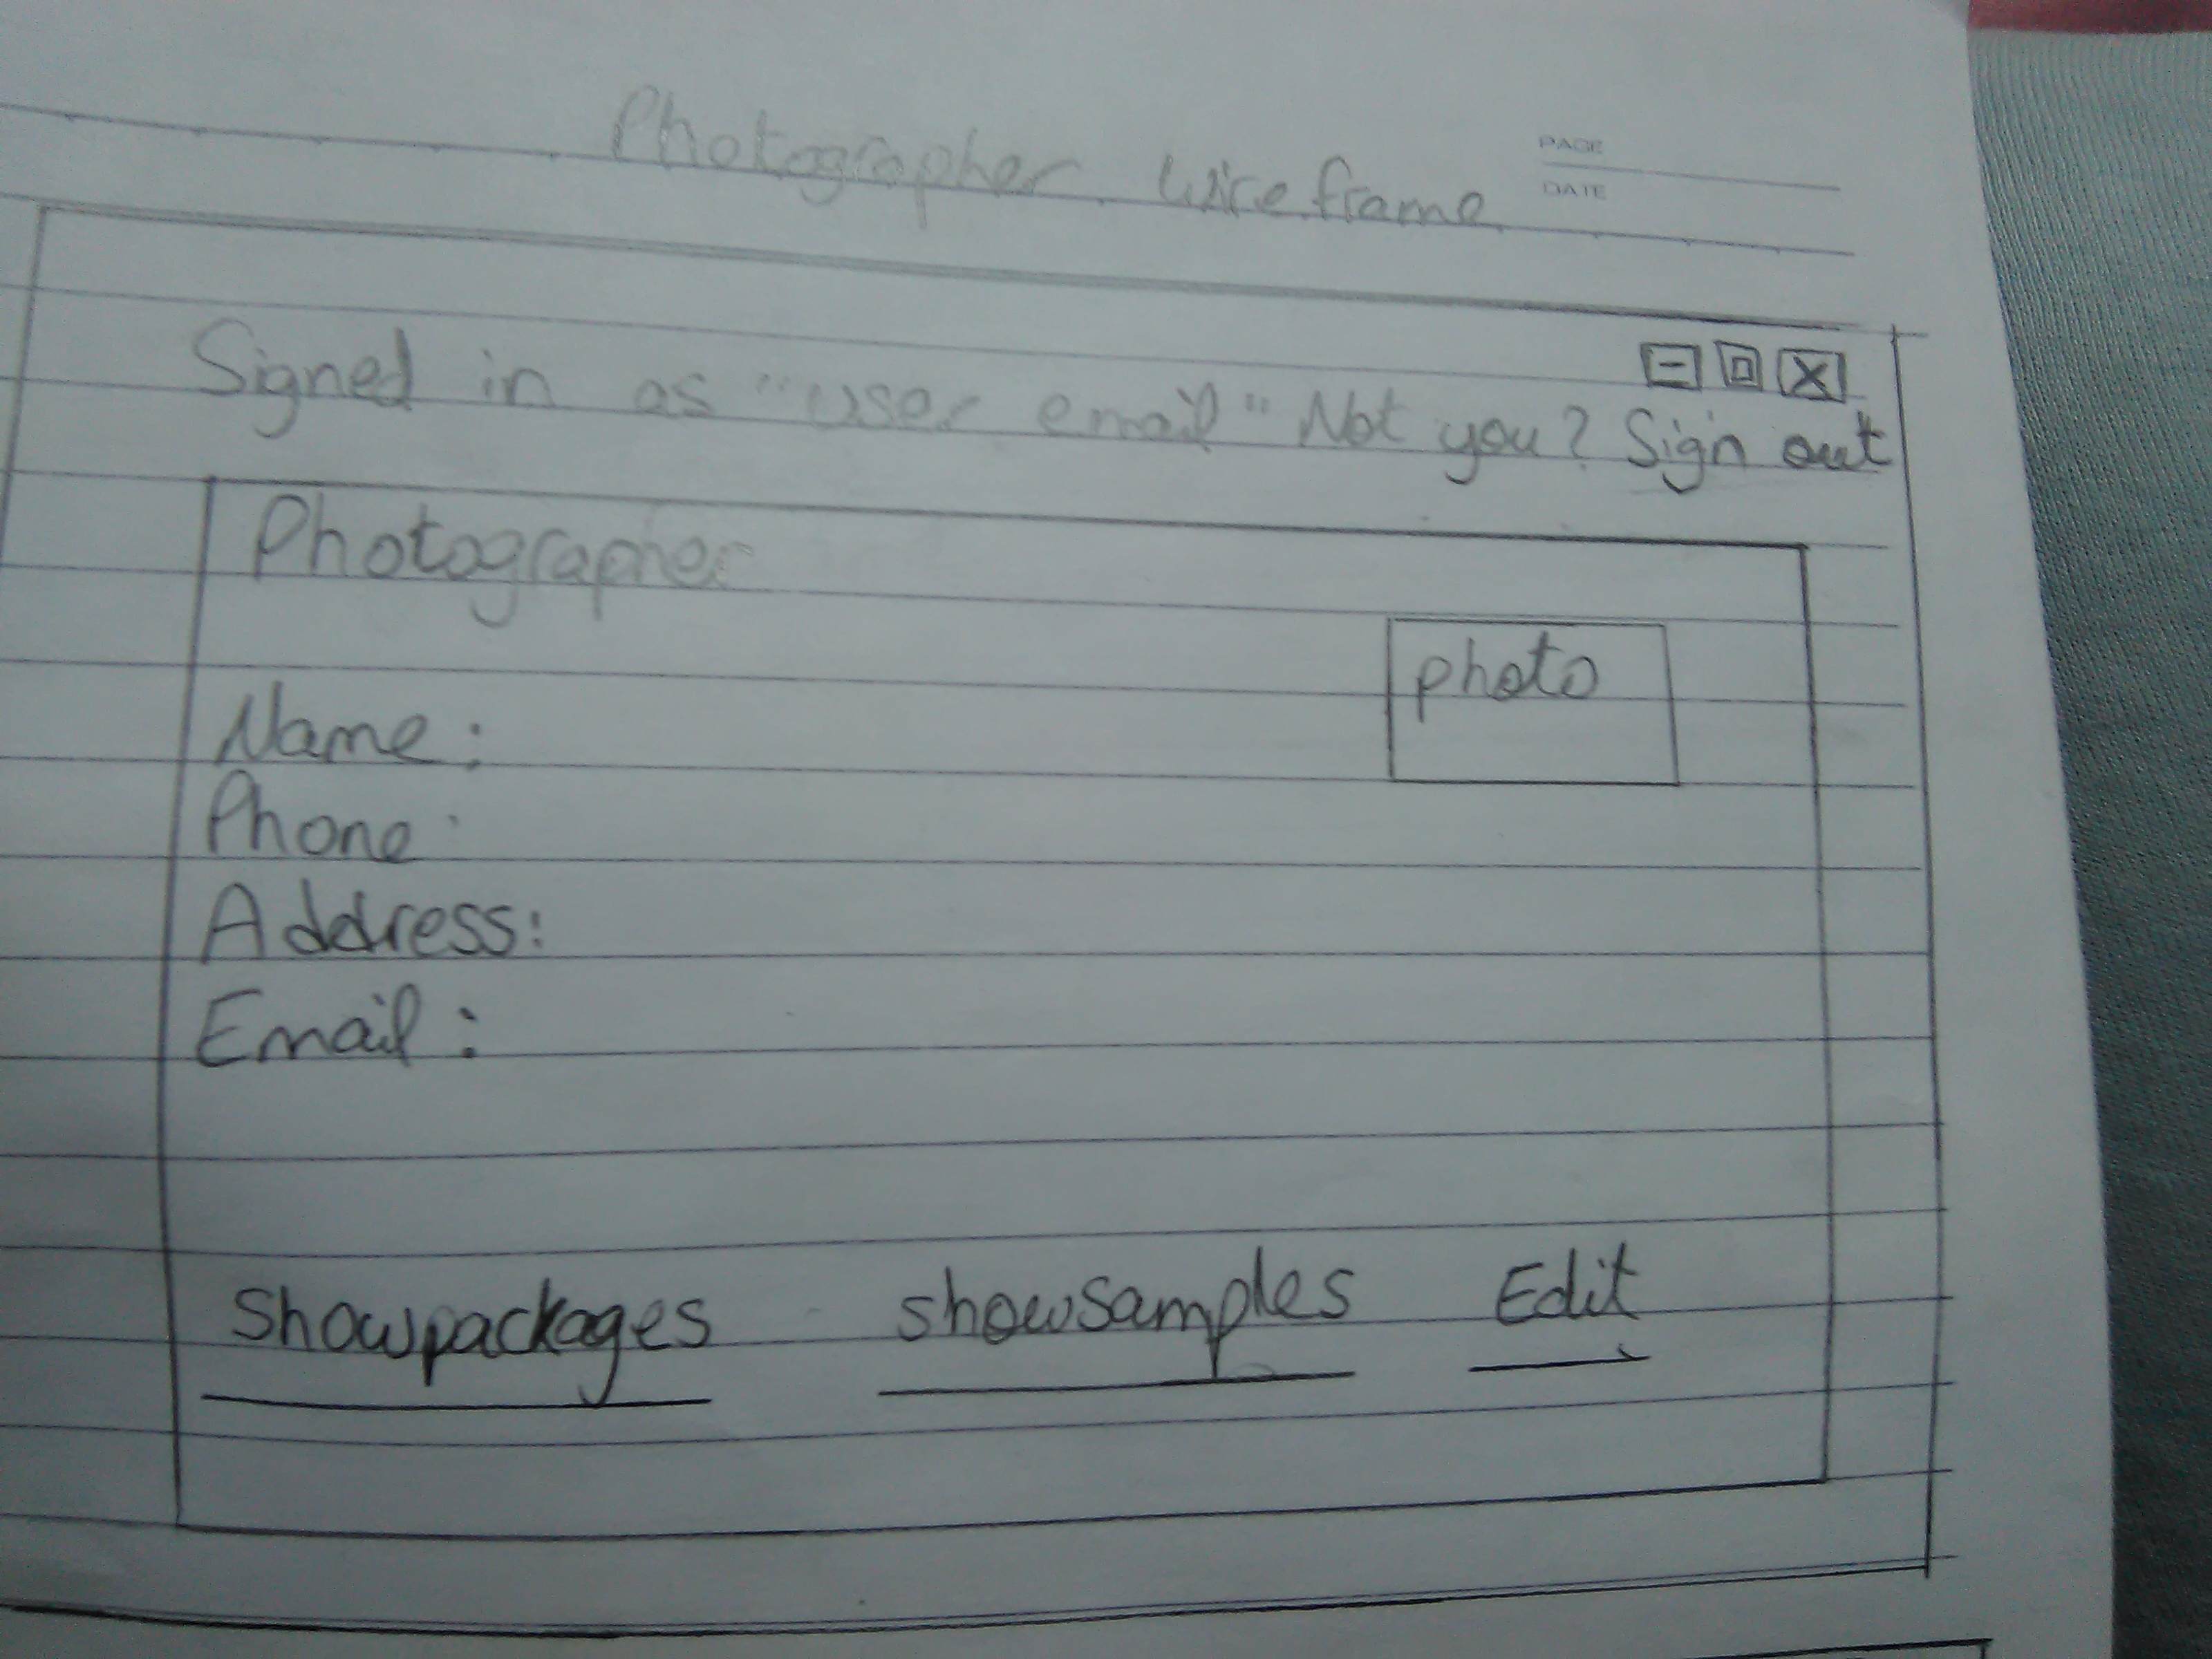 Photographer wireframe
PAGE
DATE
Signed in as "user email" Not you? Sign out
Photographer
photo
Name:
Phone:
Address:
Email:
Showpackages showsamples Edit